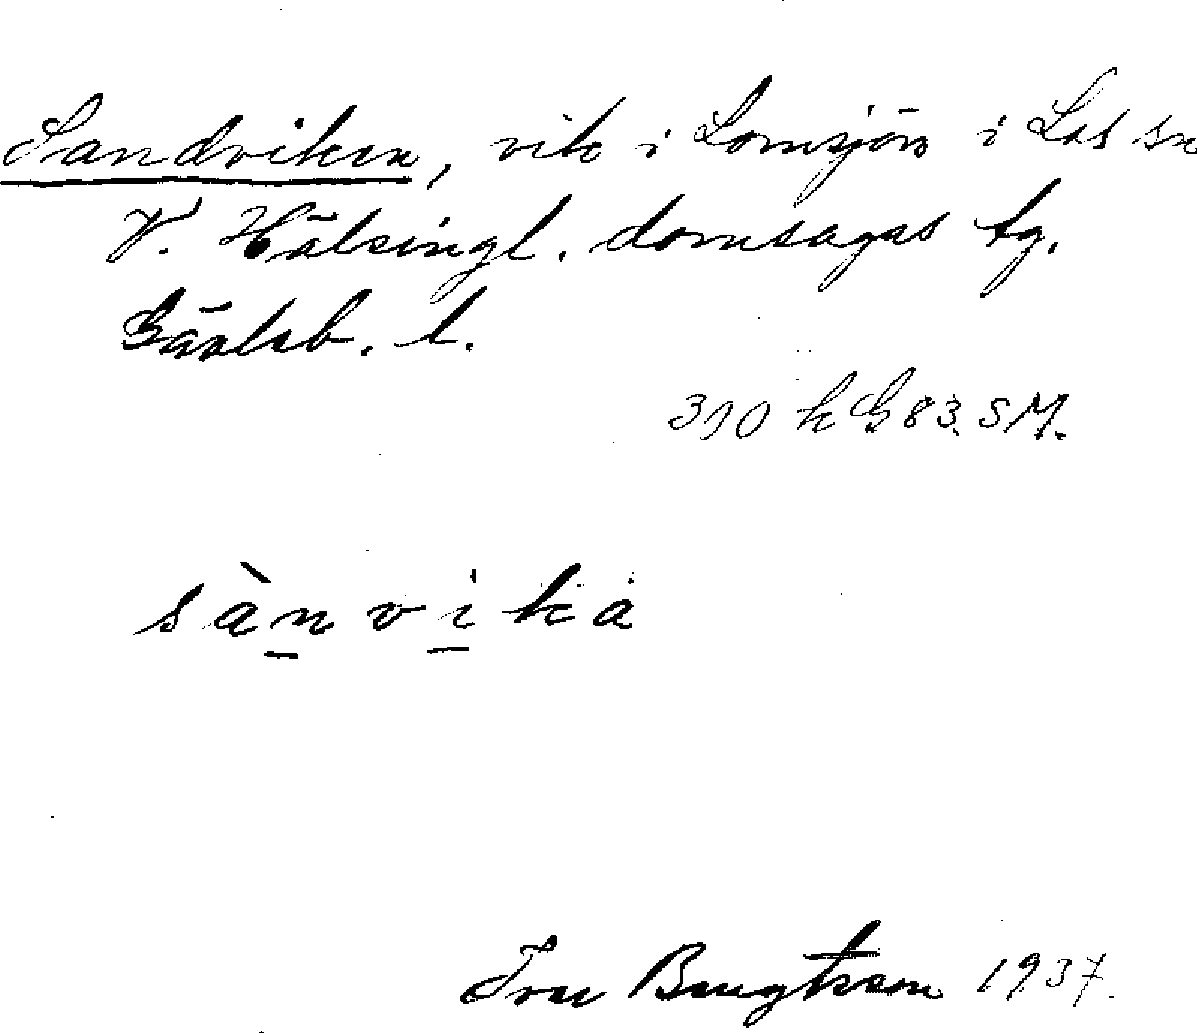 Sandviken, vik i Lomsjön i Los sn
V. Hälsingl. domsagas tg.
Gävleb. l.
310 h G 83. SM.
sànvika
Ivar Bengtsson 1937.